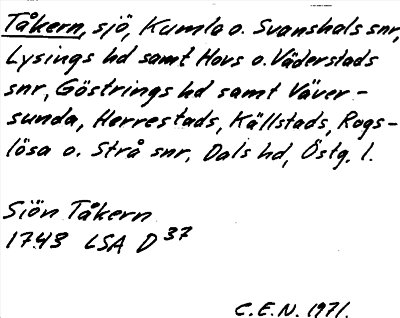 Tåkern, sjö, Kumla o. Svanshals snr,
Lysings hd samt Hovs o. Väderstads
snr, Göstrings hd samt Väver-
sunda, Herrestads, Källstads, Rogs-
lösa o. Strå snr, Dals hd, Östg. l.
Sjön Tåkern
1743 LSA D 37
C.E.N. 1971.